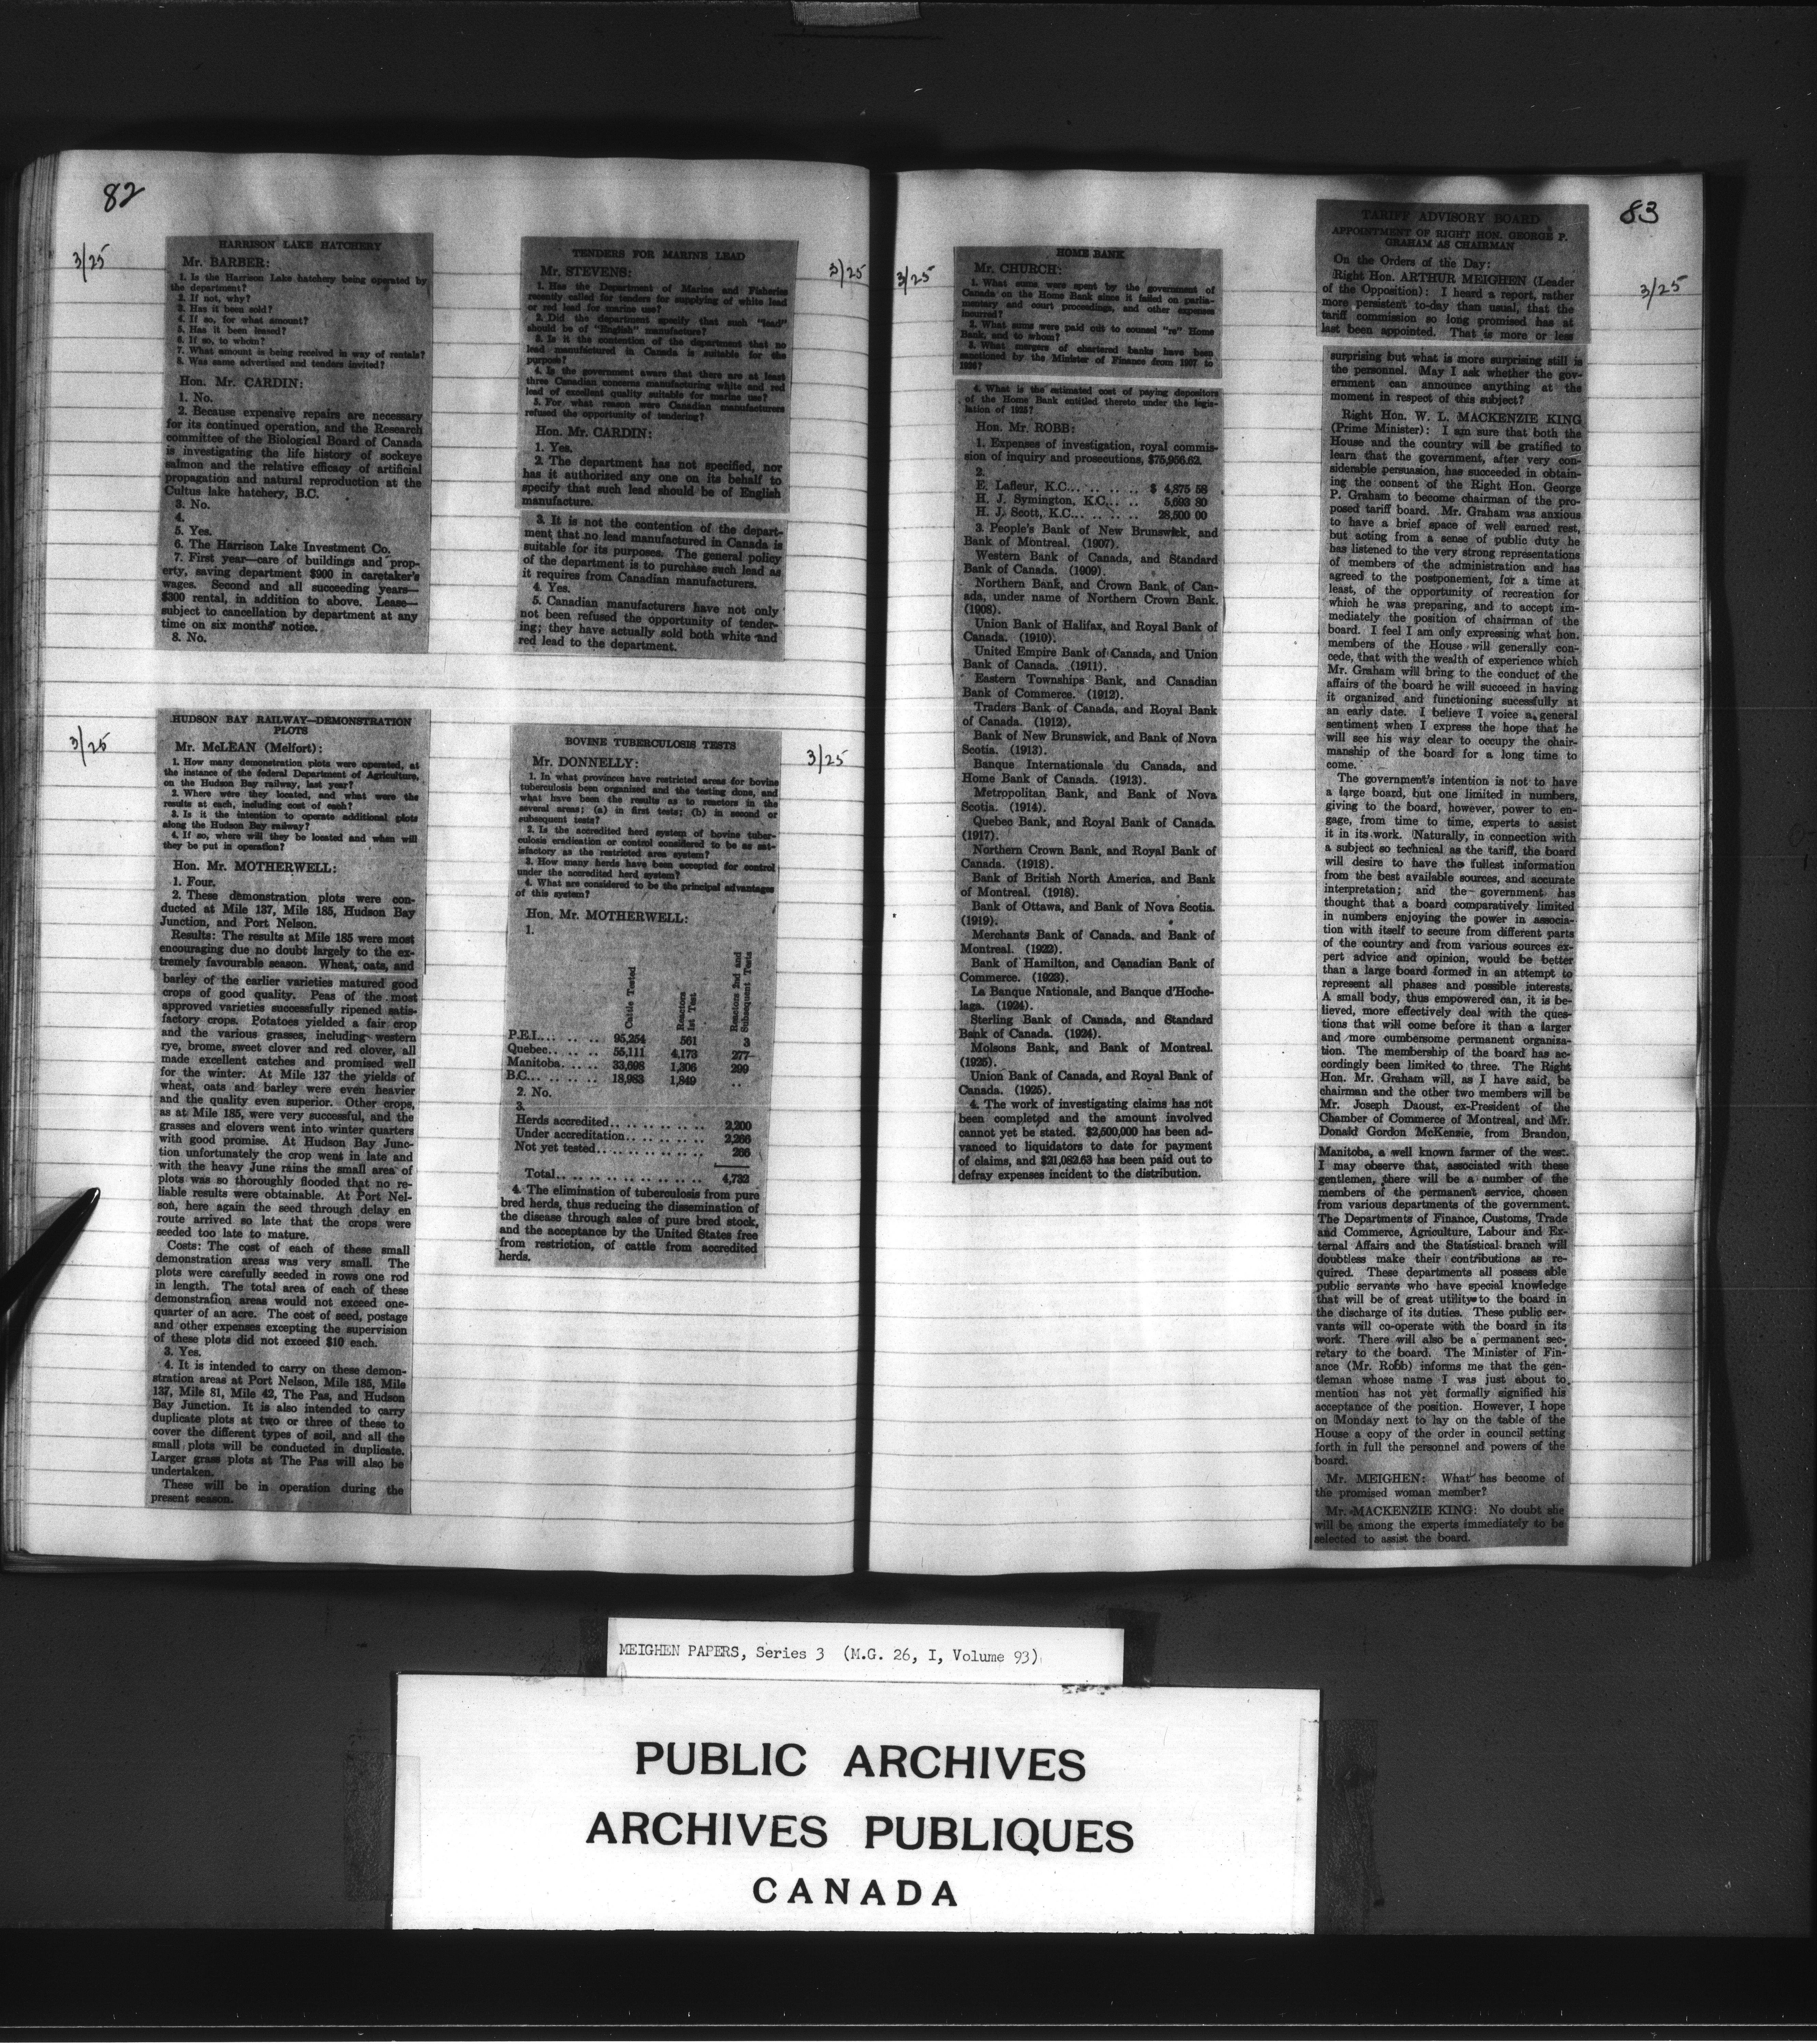 82
3/25
HARRISON LAKE HATCHERY
Mr. BARBER:
1. Is the Harrison Lake hatchery being operated by
the department?
2. If not, why?
3. Has it been sold?
4. If so, for what amount?
5. Has it been leased?
6. If so, to whom?
7. What amount is being received in way of rentals?
8. Was same advertised and tenders invited?
Hon. Mr. CARDIN:
1. No.
2. Because expensive repairs are necessary
for its continued operation, and the Research
committee of the Biological Board of Canada
is investigating the life history of sockeye
salmon and the relative efficacy of artificial
propagation and natural reproduction at the
Cultus lake hatchery, B.C.
3. No.
4.
5. Yes.
6. The Harrison Lake Investment Co.
7. First year—care of buildings and prop-
erty, saving department $900 in caretaker's
wages. Second and all succeeding years—
$300 rental, in addition to above. Lease—
subject to cancellation by department at any
time on six months' notice.
8. No.
3/25
HUDSON BAY RAILWAY—DEMONSTRATION
PLOTS
Mr. McLEAN (Melfort):
1. How many demonstration plots were operated, at
the instance of the federal Department of Agriculture,
on the Hudson Bay railway, last year?
2. Where were they located, and what were the
results at each, including cost of each?
3. Is it the intention to operate additional plots
along the Hudson Bay railway?
4. If so, where will they be located and when will
they be put in operation?
Hon. Mr. MOTHERWELL:
1. Four.
2. These demonstration plots were con-
ducted at Mile 137, Mile 185, Hudson Bay
Junction, and Port Nelson.
Results: The results at Mile 185 were most
encouraging due no doubt largely to the ex-
tremely favourable season. Wheat, oats, and
barley of the earlier varieties matured good
crops of good quality. Peas of the most
approved varieties successfully ripened satis-
factory crops. Potatoes yielded a fair crop
and the various grasses, including western
rye, brome, sweet clover and red clover, all
made excellent catches and promised well
for the winter. At Mile 137 the yields of
wheat, oats and barley were even heavier
and the quality even superior. Other crops,
as at Mile 185, were very successful, and the
grasses and clovers went into winter quarters
with good promise. At Hudson Bay Junc-
tion unfortunately the crop went in late and
with the heavy June rains the small area of
plots was so thoroughly flooded that no re-
liable results were obtainable. At Port Nel-
son, here again the seed through delay en
route arrived so late that the crops were
seeded too late to mature.
Costs: The cost of each of these small
demonstration areas was very small. The
plots were carefully seeded in rows one rod
in length. The total area of each of these
demonstration areas would not exceed one-
quarter of an acre. The cost of seed, postage
and other expenses excepting the supervision
of these plots did not exceed $10 each.
3. Yes.
4. It is intended to carry on these demon-
stration areas at Port Nelson, Mile 185, Mile
137, Mile 81, Mile 42, The Pas, and Hudson
Bay Junction. It is also intended to carry
duplicate plots at two or three of these to
cover the different types of soil, and all the
small plots will be conducted in duplicate.
Larger grass plots at The Pas will also be
undertaken.
These will be in operation during the
present season.
3/25
TENDERS FOR MARINE LEAD
Mr. STEVENS:
1. Has the Department of Marine and Fisheries
recently called for tenders for supplying of white lead
or red lead for marine use?
2. Did the department specify that such "lead"
should be of "English" manufacture?
3. Is it the contention of the department that no
lead manufactured in Canada is suitable for the
purpose?
4. Is the government aware that there are at least
three Canadian concerns manufacturing white and red
lead of excellent quality suitable for marine use?
5. For what reason were Canadian manufacturers
refused the opportunity of tendering?
Hon. Mr. CARDIN:
1. Yes.
2. The department has not specified, nor
has it authorized any one on its behalf to
specify that such lead should be of English
manufacture.
3. It is not the contention of the depart-
ment that no lead manufactured in Canada is
suitable for its purposes. The general policy
of the department is to purchase such lead as
it requires from Canadian manufacturers.
4. Yes.
5. Canadian manufacturers have not only
not been refused the opportunity of tender-
ing; they have actually sold both white and
red lead to the department.
3/25
BOVINE TUBERCULOSIS TESTS
Mr. DONNELLY:
1. In what provinces have restricted areas for bovine
tuberculosis been organized and the testing done, and
what have been the results as to reactors in the
several areas; (a) in first tests; (b) in second or
subsequent tests?
2. Is the accredited herd system of bovine tuber-
culosis eradication or control considered to be as sat-
isfactory as the restricted area system?
3. How many herds have been accepted for control
under the accredited herd system?
4. What are considered to be the principal advantages
of this system?
Hon. Mr. MOTHERWELL:
1.
Cattle Tested
Reactors
1st Test
Reactors 2nd and
Subsequent Tests
P.E.I... .. .. .. 95,254 561 3
Quebec.. .. .. 55,111 4,173 277
Manitoba.. .. .. 33,698 1,306 299
B.C... .. .. .. 18,983 1,849 ..
2. No.
3.
Herds accredited.. .. .. .. .. 2,200
Under accreditation.. .. .. .. .. 2,266
Not yet tested.. .. .. .. .. .. 266
Total.. .. .. .. .. .. .. .. 4,732
4. The elimination of tuberculosis from pure
bred herds, thus reducing the dissemination of
the disease through sales of pure bred stock,
and the acceptance by the United States free
from restriction, of cattle from accredited
herds.
3/25
HOME BANK
Mr. CHURCH:
1. What sums were spent by the government of
Canada on the Home Bank since it failed on parlia-
mentary and court proceedings, and other expenses
incurred?
2. What sums were paid out to counsel "re" Home
Bank, and to whom?
3. What mergers of chartered banks have been
sanctioned by the Minister of Finance from 1907 to
1926?
4. What is the estimated cost of paying depositors
of the Home Bank entitled thereto under the legis-
lation of 1925?
Hon. Mr. ROBB:
1. Expenses of investigation, royal commis-
sion of inquiry and prosecutions, $75,956.62.
2.
E. Lafleur, K.C... .. .. .. $ 4,875 58
H. J. Symington, K.C... .. .. 5,693 80
H. J. Scott, K.C... .. .. .. 28,500 00
3. People's Bank of New Brunswick, and
Bank of Montreal. (1907).
Western Bank of Canada, and Standard
Bank of Canada. (1909).
Northern Bank, and Crown Bank of Can-
ada, under name of Northern Crown Bank.
(1908).
Union Bank of Halifax, and Royal Bank of
Canada. (1910).
United Empire Bank of Canada, and Union
Bank of Canada. (1911).
Eastern Townships Bank, and Canadian
Bank of Commerce. (1912).
Traders Bank of Canada, and Royal Bank
of Canada. (1912).
Bank of New Brunswick, and Bank of Nova
Scotia. (1913).
Banque Internationale du Canada, and
Home Bank of Canada. (1913).
Metropolitan Bank, and Bank of Nova
Scotia. (1914).
Quebec Bank, and Royal Bank of Canada.
(1917).
Northern Crown Bank, and Royal Bank of
Canada. (1918).
Bank of British North America, and Bank
of Montreal. (1918).
Bank of Ottawa, and Bank of Nova Scotia.
(1919).
Merchants Bank of Canada, and Bank of
Montreal. (1922).
Bank of Hamilton, and Canadian Bank of
Commerce. (1923).
La Banque Nationale, and Banque d'Hoche-
laga. (1924).
Sterling Bank of Canada, and Standard
Bank of Canada. (1924).
Molsons Bank, and Bank of Montreal.
(1925).
Union Bank of Canada, and Royal Bank of
Canada. (1925).
4. The work of investigating claims has not
been completed and the amount involved
cannot yet be stated. $2,500,000 has been ad-
vanced to liquidators to date for payment
of claims, and $21,082.63 has been paid out to
defray expenses incident to the distribution.
83
3/25
TARIFF ADVISORY BOARD
APPOINTMENT OF RIGHT HON. GEORGE P.
GRAHAM AS CHAIRMAN
On the Orders of the Day:
Right Hon. ARTHUR MEIGHEN (Leader
of the Opposition): I heard a report, rather
more persistent to-day than usual, that the
tariff commission so long promised has at
last been appointed. That is more or less
surprising but what is more surprising still is
the personnel. May I ask whether the gov-
ernment can announce anything at the
moment in respect of this subject?
Right Hon. W. L. MACKENZIE KING
(Prime Minister): I am sure that both the
House and the country will be gratified to
learn that the government, after very con-
siderable persuasion, has succeeded in obtain-
ing the consent of the Right Hon. George
P. Graham to become chairman of the pro-
posed tariff board. Mr. Graham was anxious
to have a brief space of well earned rest,
but acting from a sense of public duty he
has listened to the very strong representations
of members of the administration and has
agreed to the postponement, for a time at
least, of the opportunity of recreation for
which he was preparing, and to accept im-
mediately the position of chairman of the
board. I feel I am only expressing what hon.
members of the House will generally con-
cede, that with the wealth of experience which
Mr. Graham will bring to the conduct of the
affairs of the board he will succeed in having
it organized and functioning sucessfully at
an early date. I believe I voice a general
sentiment when I express the hope that he
will see his way clear to occupy the chair-
manship of the board for a long time to
come.
The government's intention is not to have
a large board, but one limited in numbers,
giving to the board, however, power to en-
gage, from time to time, experts to assist
it in its work. Naturally, in connection with
a subject so technical as the tariff, the board
will desire to have the fullest information
from the best available sources, and accurate
interpretation; and the government has
thought that a board comparatively limited
in numbers enjoying the power in associa-
tion with itself to secure from different parts
of the country and from various sources ex-
pert advice and opinion, would be better
than a large board formed in an attempt to
represent all phases and possible interests.
A small body, thus empowered can, it is be-
lieved, more effectively deal with the ques-
tions that will come before it than a larger
and more cumbersome permanent organiza-
tion. The membership of the board has ac-
cordingly been limited to three. The Right
Hon. Mr. Graham will, as I have said, be
chairman and the other two members will be
Mr. Joseph Daoust, ex-President of the
Chamber of Commerce of Montreal, and Mr.
Donald Gordon McKenzie, from Brandon,
Manitoba, a well known farmer of the west.
I may observe that, associated with these
gentlemen, there will be a number of the
members of the permanent service, chosen
from various departments of the government.
The Departments of Finance, Customs, Trade
and Commerce, Agriculture, Labour and Ex-
ternal Affairs and the Statistical branch will
doubtless make their contributions as re-
quired. These departments all possess able
public servants who have special knowledge
that will be of great utility to the board in
the discharge of its duties. These public ser-
vants will co-operate with the board in its
work. There will also be a permanent sec-
retary to the board. The Minister of Fin-
ance (Mr. Robb) informs me that the gen-
tleman whose name I was just about to
mention has not yet formally signified his
acceptance of the position. However, I hope
on Monday next to lay on the table of the
House a copy of the order in council setting
forth in full the personnel and powers of the
board.
Mr. MEIGHEN: What has become of
the promised woman member?
Mr. MACKENZIE KING: No doubt she
will be among the experts immediately to be
selected to assist the board.
3/25
MEIGHEN PAPERS, Series 3 (M.G. 26, I, Volume 93)
PUBLIC ARCHIVES
ARCHIVES PUBLIQUES
CANADA